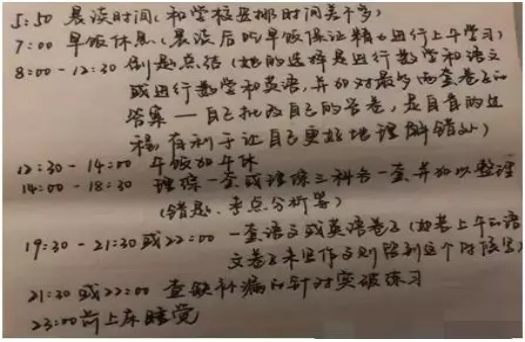 5:50 晨读时间(和学校安排时间差不多)
7:00 早饭休息(晨读后吃早饭保证精力进行上午学习)
8:00-12:30 做题总结(她的选择是进行数学和语文
或进行数学和英语,并加对最多两套卷子的
答案——自己批改自己的答卷,是自省的过
程,有利于让自己更好地理解错处)
12:30-14:00 午饭加午休
14:00-18:30 理综一套或理综三科各一套,并加以整理
(错题、考点分析等)
19:30-21:30或22:00 一套语文或英语卷子(如若上午的语
文卷子未写作文则留到这个时候写)
21:30或22:00 查缺补漏的针对突破练习
23:00前上床睡觉